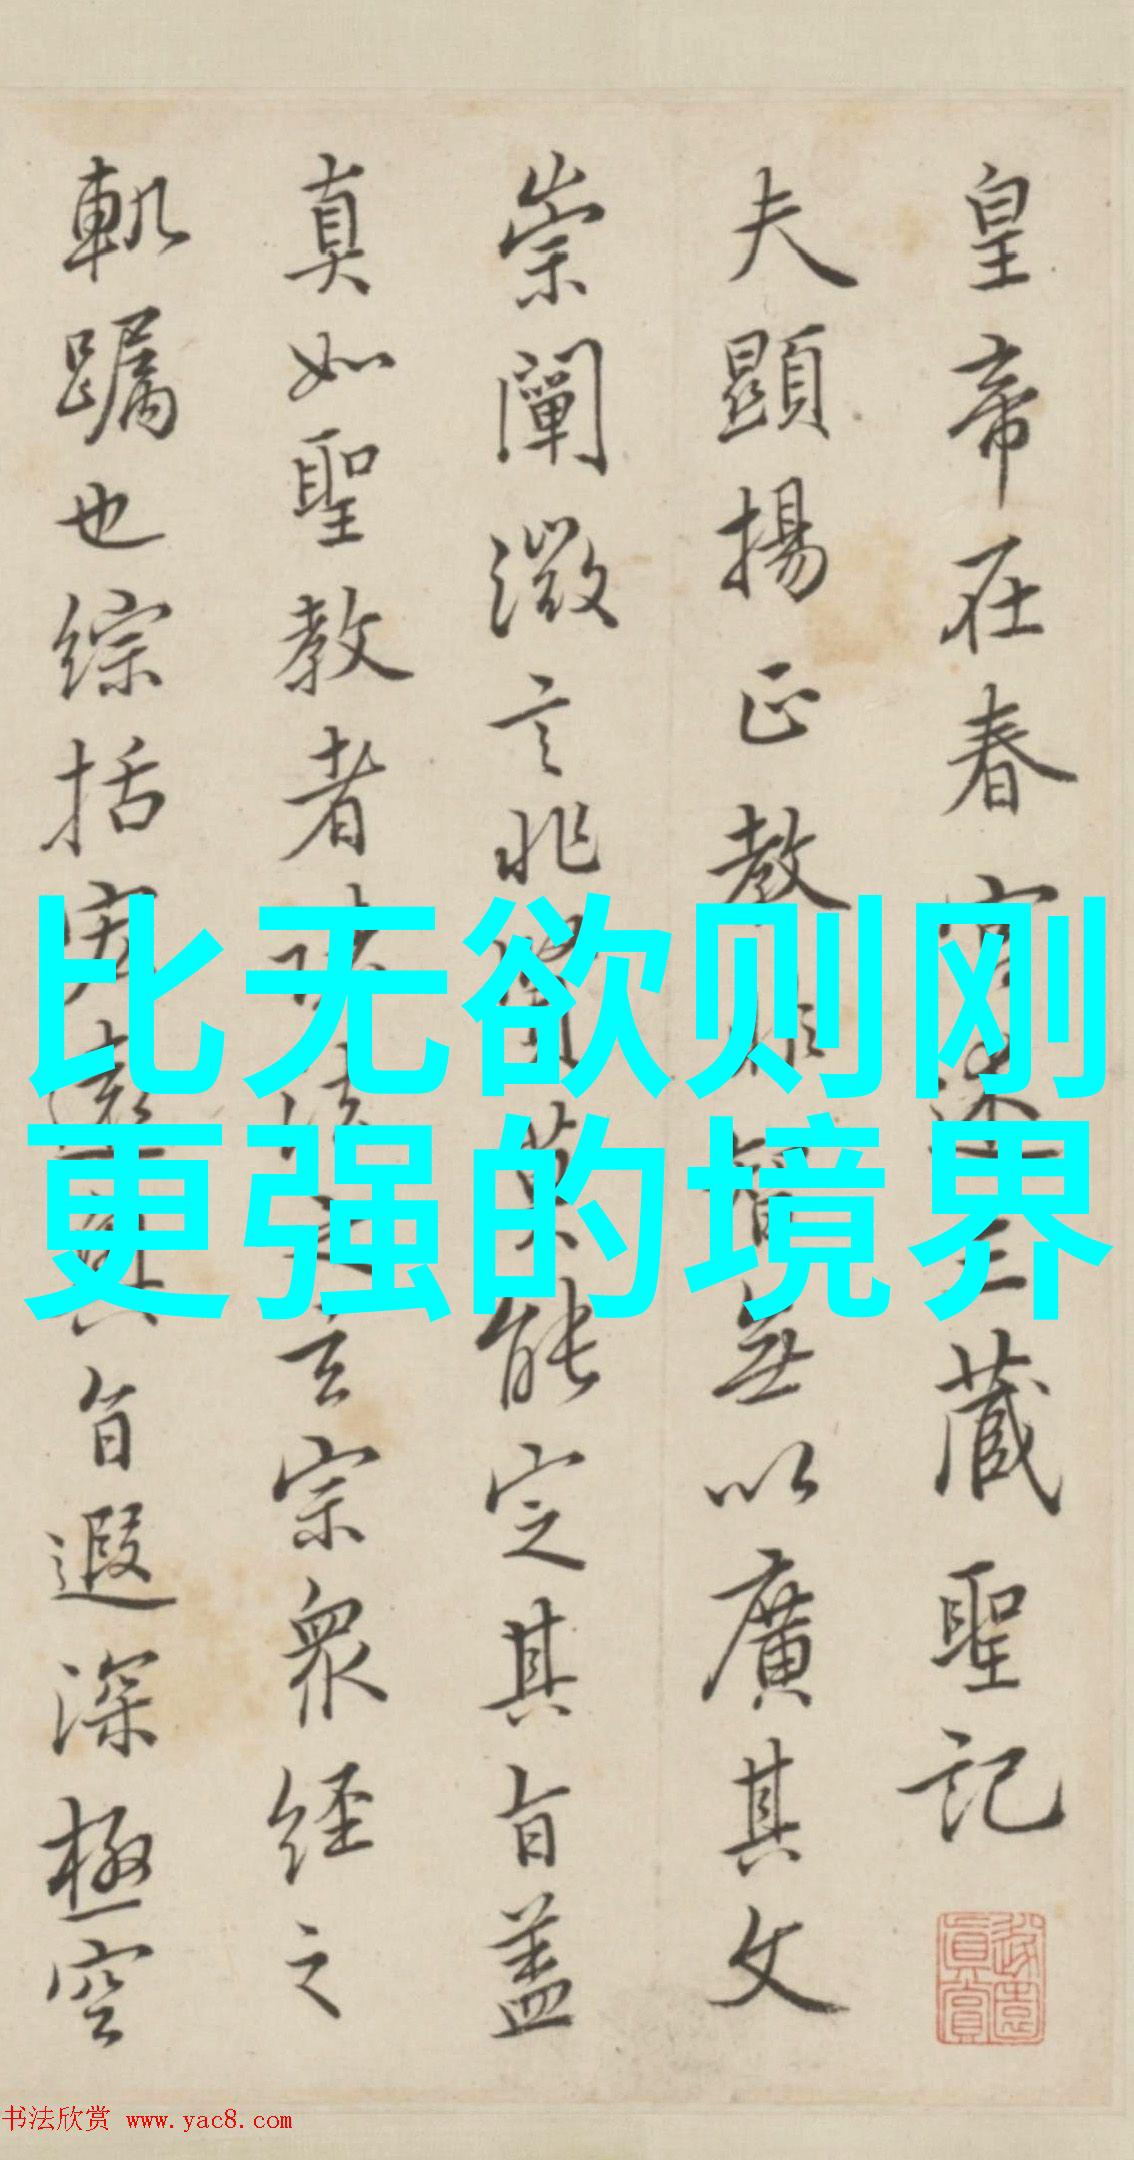 皇帝在春宮述三藏聖記
夫顯揚正教非智無以廣其文
崇闡微言非賢莫能定其旨蓋
真如聖教者諸法之玄宗衆經之
軌躅也綜括宏遠奧旨遐深極空
比无欲则刚
更强的境界
真賞
书法欣赏 www.yac8.com